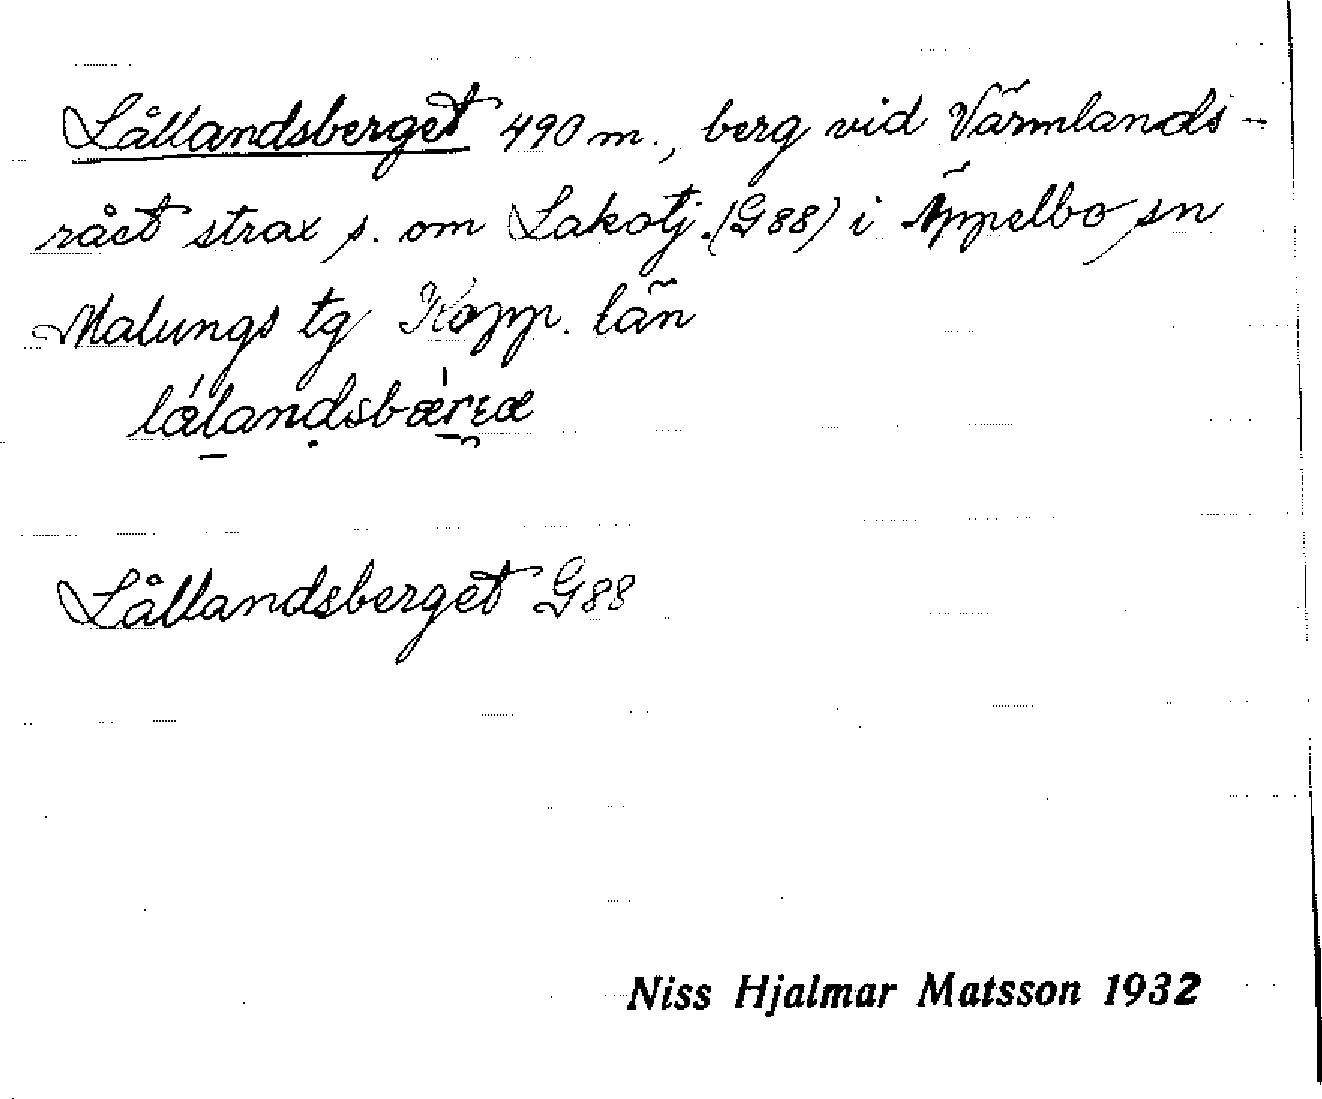 Lållandsberget 490 m., berg vid Värmlands-
rået strax s. om Lakotj. (G88) i Äppelbo sn
Malungs tg Kopp. län
lålandsbærɛæ
Lållandsberget G88
Niss Hjalmar Matsson 1932